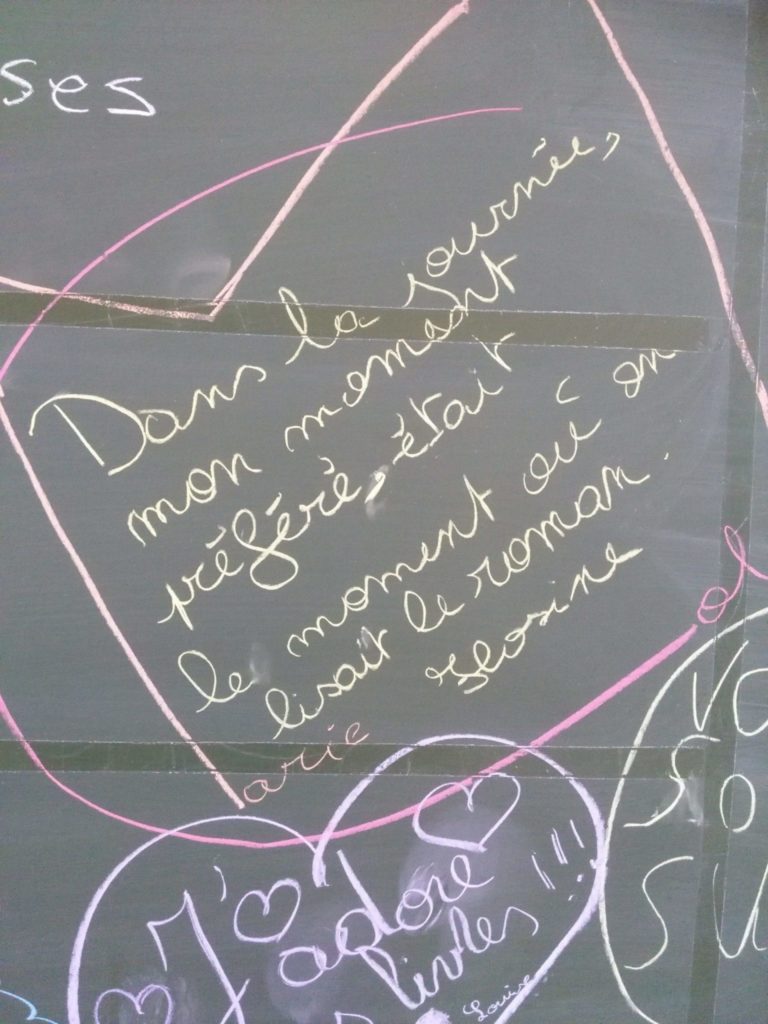 ses
Dans la journée,
mon momant
préféré, était
le moment où on
lisait le roman.
arie
J'adore
livres !!!
Louise
so
su